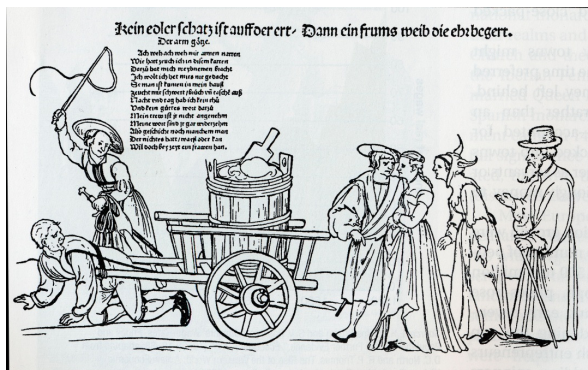 Kein edler schatz ist auff der ert, Dann ein frums weib die ehr begert.
Der arm
Ach weh ach weh mir armen narren
Wie hart zeuch ich in disem karren
Darzu hat mich weybnemen bracht
Ich wolt ich het mirs nie gedacht
ist kumen in mein hauß
zeucht mir schwert auß
Nacht und tag hab ich kein rhu
Und kein guttes wort darzu
Mein trew ist je nicht angenehm
Meine wort sind je gar
Also geschicht noch manchem man
Der nichtes hatt, waiß oder kan
Will doch bey zeyt ein frawen han.